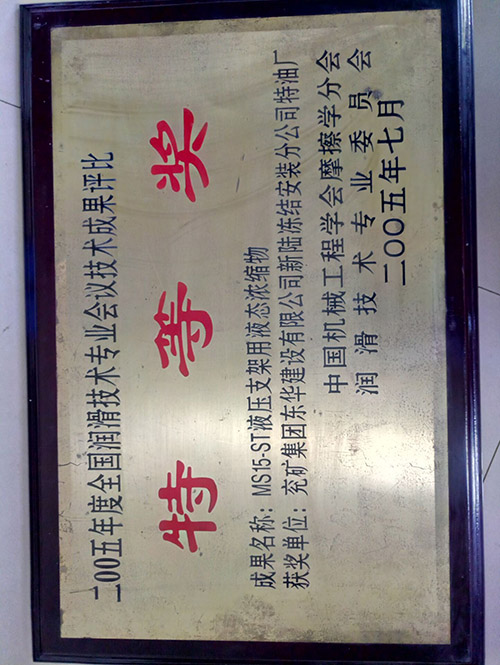 二00五年度全国润滑技术专业会议技术成果评比
特等奖
成果名称：MS15-ST液压支架用液态浓缩物
获奖单位：兖矿集团东华建设有限公司新陆冻结安装分公司特油厂
中国机械工程学会摩擦学分会
润滑技术专业委员会
二00五年七月